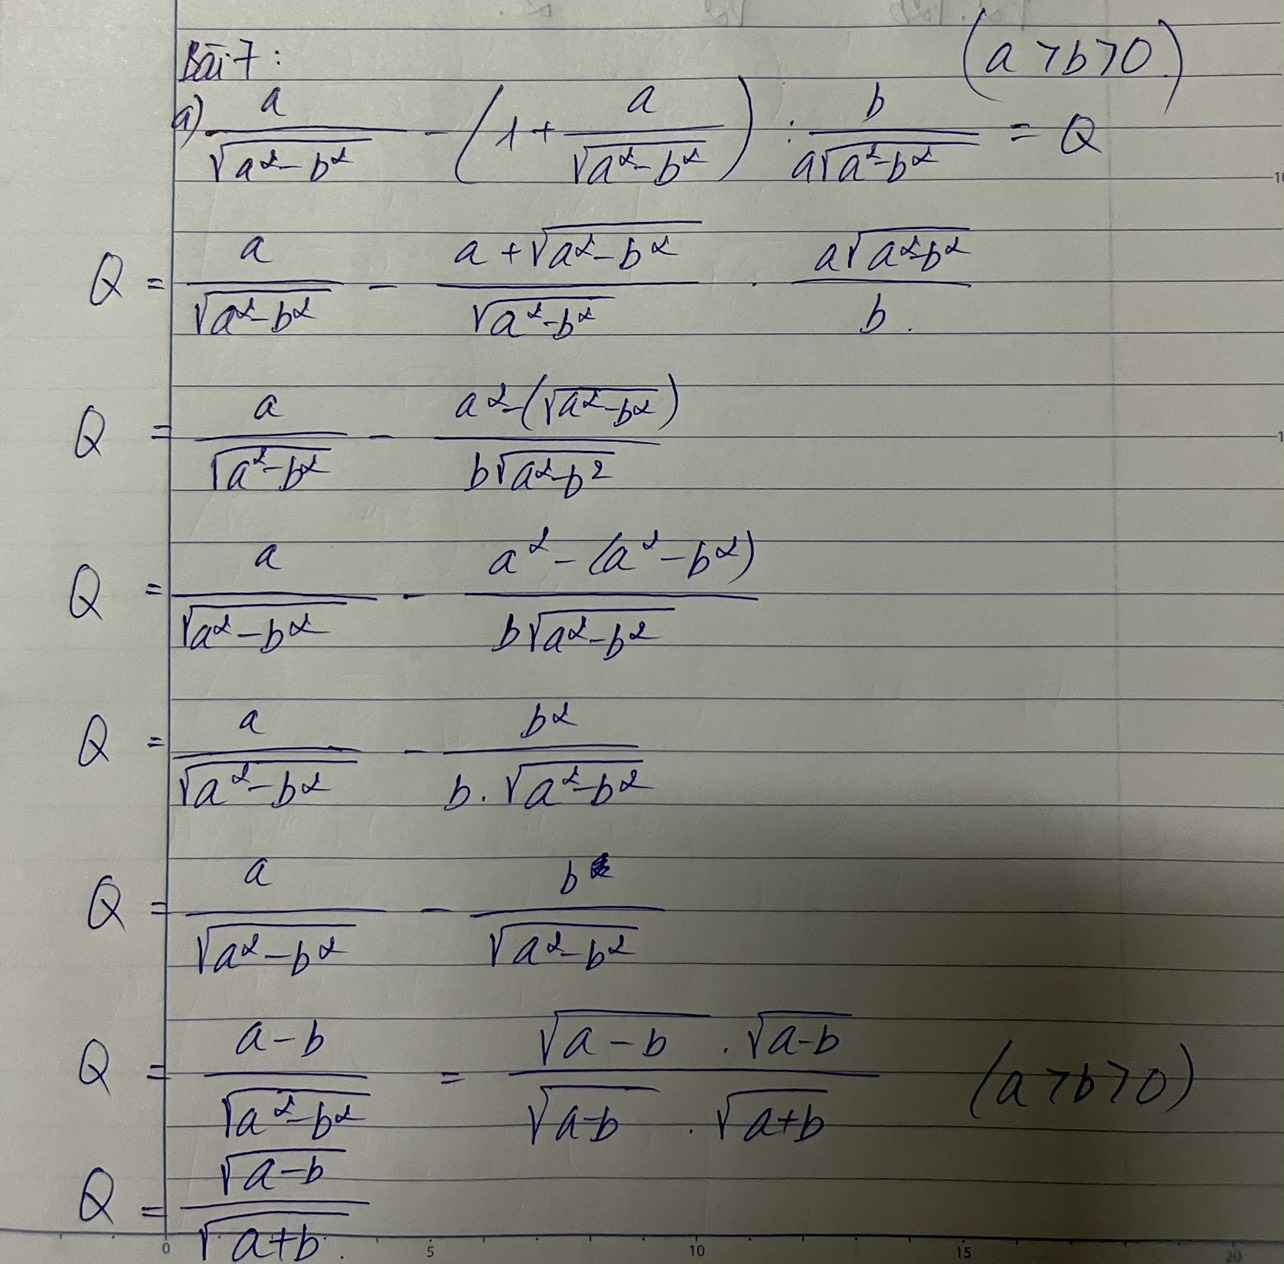 Bài 7: (a > b > 0)
a) a/√(a²-b²) - (1 + a/√(a²-b²)) : b/(a√(a²-b²)) = Q
Q = a/√(a²-b²) - (a + √(a²-b²))/√(a²-b²) . a√(a²-b²)/b.
Q = a/√(a²-b²) - (a² - (√(a²-b²)))/(b√(a²-b²))
Q = a/√(a²-b²) - (a² - (a² - b²))/(b√(a²-b²))
Q = a/√(a²-b²) - b²/(b.√(a²-b²))
Q = a/√(a²-b²) - b/√(a²-b²)
Q = (a-b)/√(a²-b²) = (√(a-b) . √(a-b))/(√(a-b) . √(a+b)) (a > b > 0)
Q = √(a-b)/√(a+b).
0 5 10 15 20